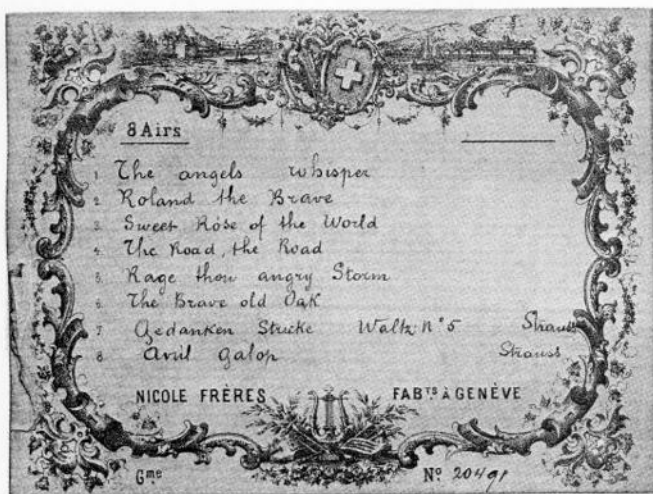 8 Airs
1 The angels whisper
2. Roland the Brave
3. Sweet Rose of the World
4. The Road, the Road
5. Rage thou angry Storm
6. The Brave old Oak
7 Gedanken Stricke Waltz. N° 5 Strauss
8 Galop Strauss
NICOLE FRÈRES FAB.TS À GENÈVE
Gme N° 20491